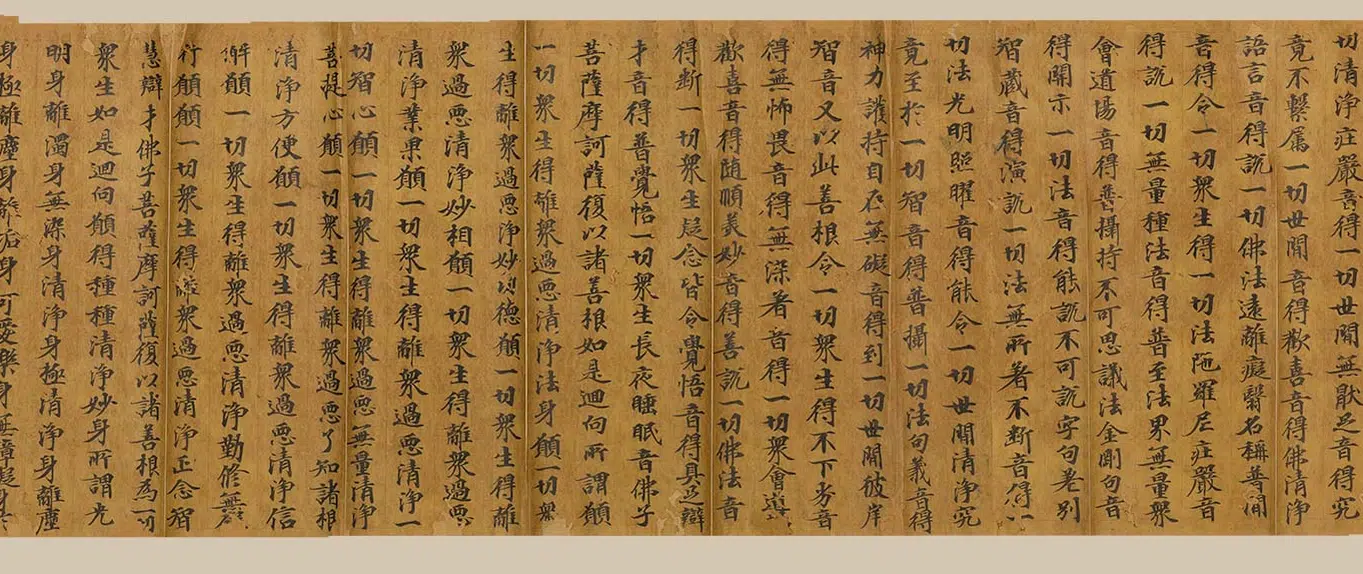 切清淨莊嚴音得一切世間無猒足音得究
竟不繫属一切世間音得歡喜音得佛清淨
語言音得說一切佛法遠離癡翳名稱普聞
音得令一切衆生得一切法陁羅尼莊嚴音
得說一切無量種法音得普至法界無量衆
會道場音得普攝持不可思議法金剛句音
得開示一切法音得能說不可說字句差別
智藏音得演說一切法無所著不斷音得一
切法光明照曜音得能令一切世間清淨究
竟至於一切智音得普攝一切法句義音得
神力護持自在無礙音得到一切世間彼岸
智音又以此善根令一切衆生得不下劣音
得無怖畏音得無染著音得一切衆會道場
歡喜音得随順美妙音得善說一切佛法音
得斷一切衆生疑念皆令覺悟音得具足辯
才音得普覺悟一切衆生長夜睡眠音佛子
菩薩摩訶薩復以諸善根如是迴向所謂願
一切衆生得離衆過惡清淨法身願一切衆
生得離衆過惡淨妙功德願一切衆生得離
衆過惡清淨妙相願一切衆生得離衆過惡
清淨業果願一切衆生得離衆過惡清淨一
切智心願一切衆生得離衆過惡無量清淨
菩提心願一切衆生得離衆過惡了知諸根
清淨方便願一切衆生得離衆過惡清淨信
解願一切衆生得離衆過惡清淨勤修無礙
行願願一切衆生得離衆過惡清淨正念智
慧辯才佛子菩薩摩訶薩復以諸善根為一切
衆生如是迴向願得種種清淨妙身所謂光
明身離濁身無染身清淨身極清淨身離塵
身極離塵身離垢身可愛樂身無障礙身